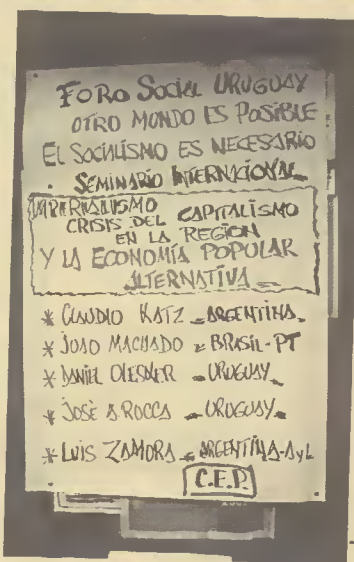 FORO SOCIAL URUGUAY
OTRO MUNDO ES POSIBLE
EL SOCIALISMO ES NECESARIO
SEMINARIO INTERNACIONAL
IMPERIALISMO
CRISIS DEL CAPITALISMO
EN LA REGION
Y LA ECONOMÍA POPULAR
ALTERNATIVA
* CLAUDIO KATZ - ARGENTINA
* JOAO MACHADO - BRASIL-PT
* DANIEL OLESKER - URUGUAY
* JOSÈ A. ROCCA - URUGUAY
* LUIS ZAMORA - ARGENTINA-AyL
C.E.P.